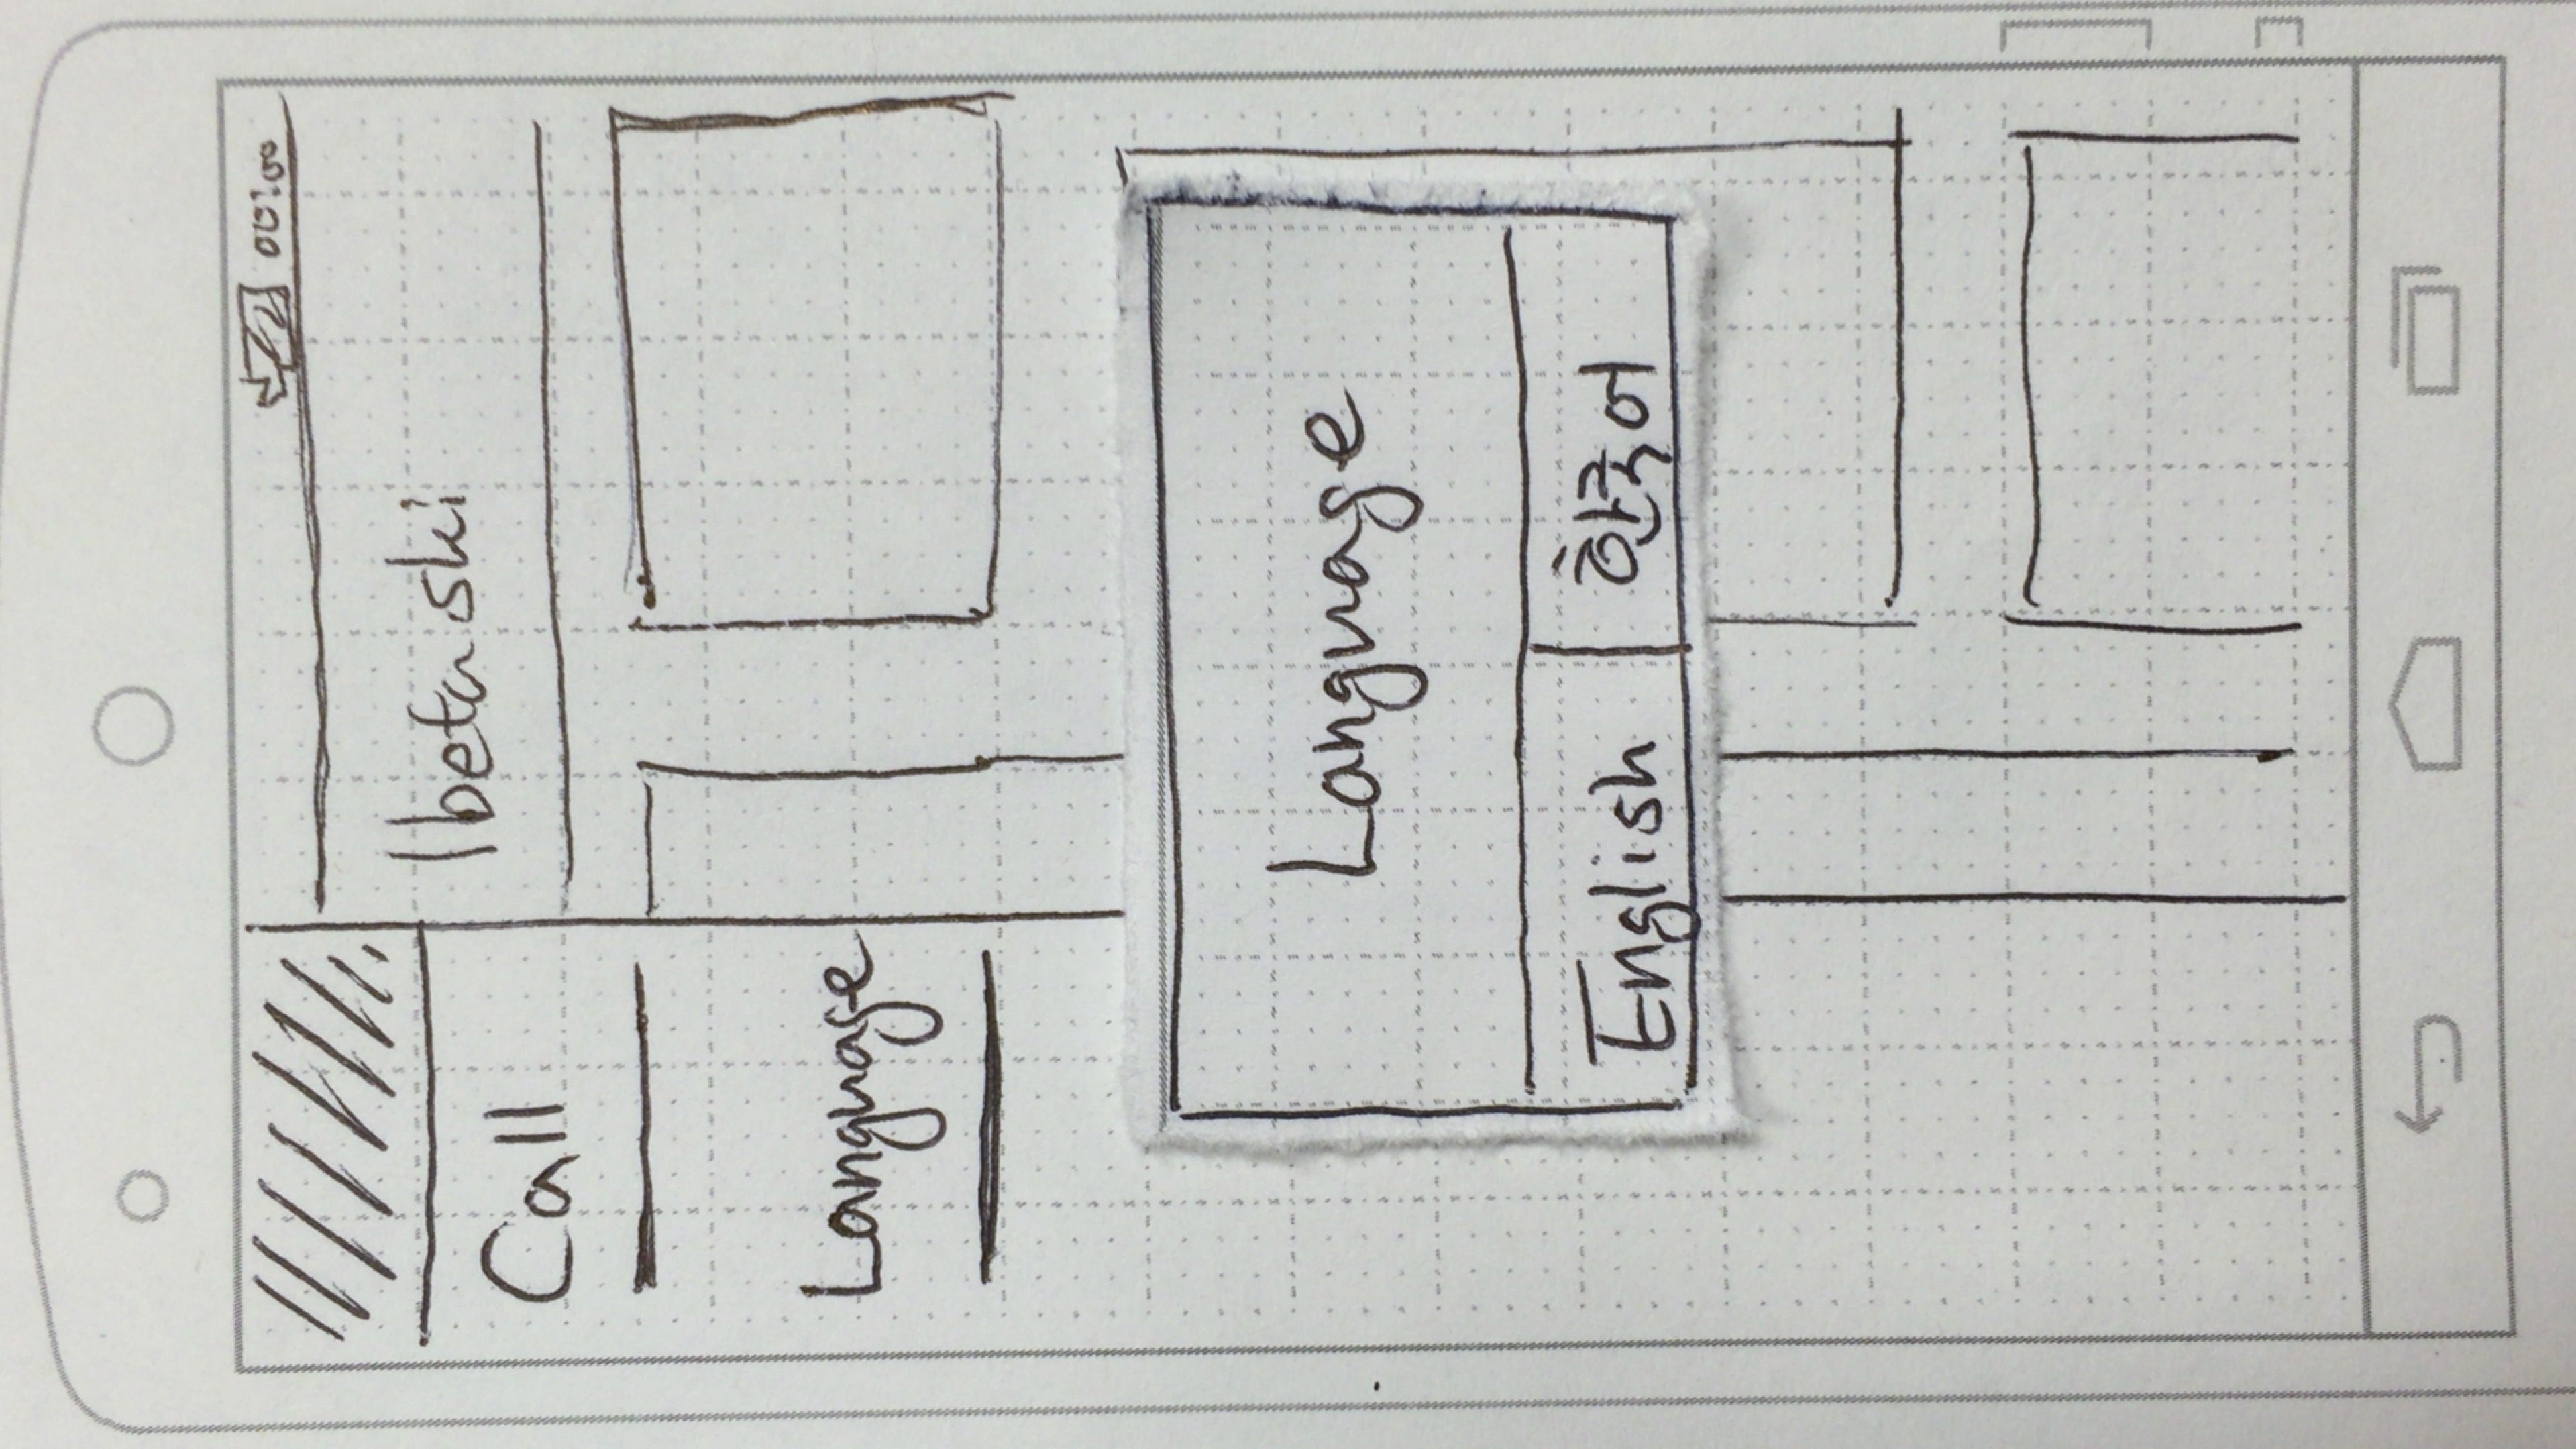 00:00
Ibeta ski
Call
Language
Language
English
한국어